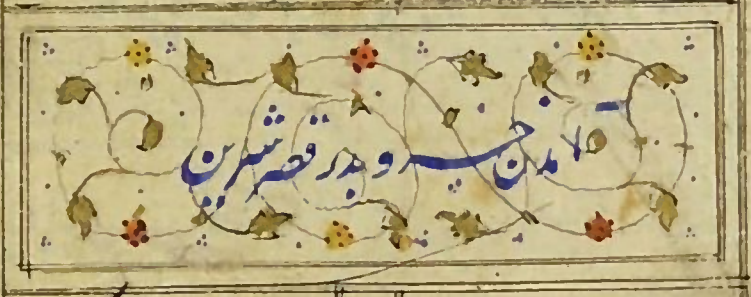 آمدن خسرو بدر قصر شیرین